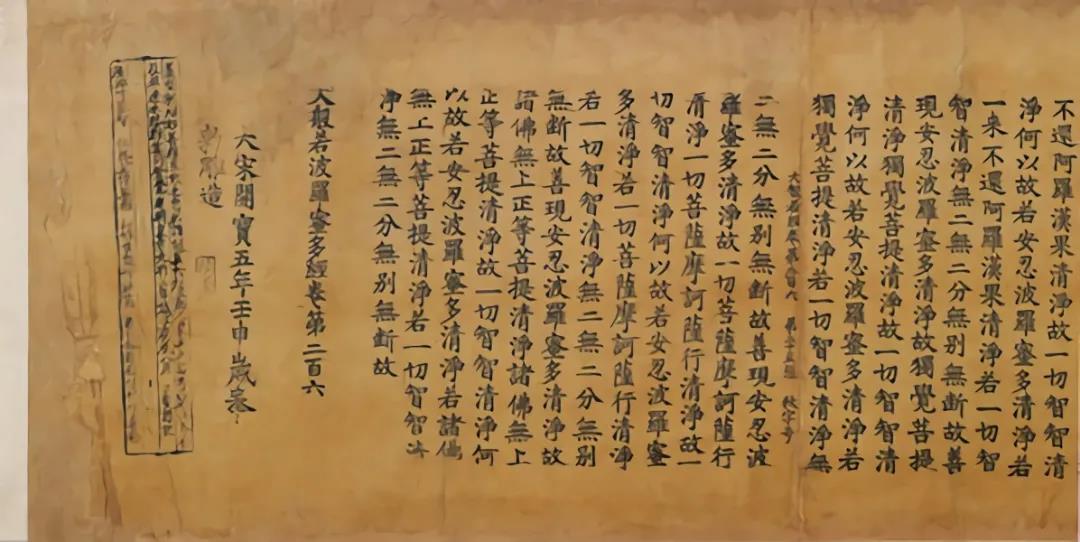 不還阿羅漢果清淨故一切智智清
淨何以故若安忍波羅蜜多清淨若
一来不還阿羅漢果清淨若一切智
智清淨無二無二分無別無斷故善
現安忍波羅蜜多清淨故獨覺菩提
清淨獨覺菩提清淨故一切智智清
淨何以故若安忍波羅蜜多清淨若
獨覺菩提清淨若一切智智清淨無
二無二分無別無斷故善現安忍波
羅蜜多清淨故一切菩薩摩訶薩行
清淨一切菩薩摩訶薩行清淨故一
切智智清淨何以故若安忍波羅蜜
多清淨若一切菩薩摩訶薩行清淨
若一切智智清淨無二無二分無別
無斷故善現安忍波羅蜜多清淨故
諸佛無上正等菩提清淨諸佛無上
正等菩提清淨故一切智智清淨何
以故若安忍波羅蜜多清淨若諸佛
無上正等菩提清淨若一切智智清
淨無二無二分無別無斷故
大般若波羅蜜多經卷第二百六
大宋開寶五年壬申歲奉
勑雕造